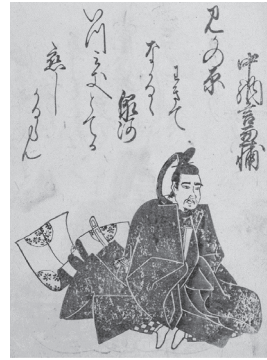 中納言兼輔
みかの原
わきて
なかるゝ
泉河
いつ見きとてか
恋し
かるらん